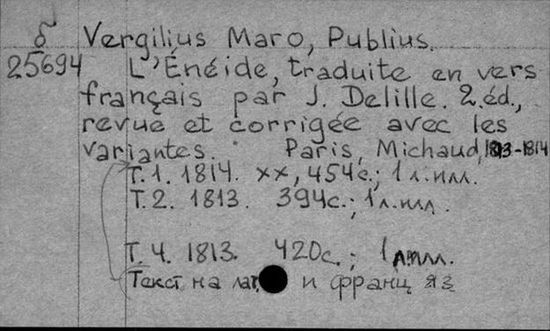 б Vergilius Maro, Publius.
25694 L'Énéide, traduite en vers
français par J. Delille. 2.éd.,
revue et corrigée avec les
variantes. Paris, Michaud, 1813-1814
T.1. 1814. xx, 454с.; 1 л.илл.
T.2. 1813. 394с.; 1 л.илл.
T.4. 1813. 420с.; 1 л.илл.
Текст на лат. и франц яз